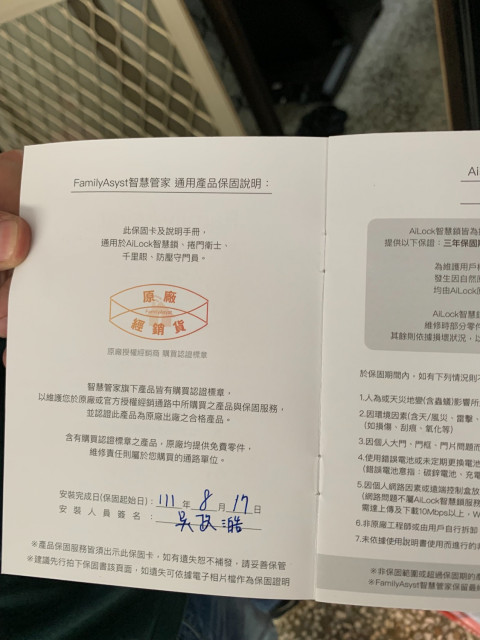 FamilyAsyst智慧管家 通用產品保固說明：
此保固卡及說明手冊，
通用於AiLock智慧鎖、捲門衛士、
千里眼、防壓守門員。
原廠
經銷貨
原廠授權經銷商 購買認證標章
智慧管家旗下產品皆有購買認證標章，
以維護您於原廠或官方授權經銷通路中所購買之產品與保固服務，
並認証此產品為原廠出廠之合格產品。
含有購買認證標章之產品，原廠均提供免費零件，
維修責任則屬於您購買的通路單位。
安裝完成日(保固起始日)：111年8月17日
安裝人員簽名：吳政澔
※產品保固服務皆須出示此保固卡，如有遺失恕不補發，請妥善保管
※建議先行拍下保固書該頁面，如遺失可依據電子相片檔作為保固證明
Ai
AiLock智慧鎖皆為
提供以下保證：三年保固
為維護用戶
發生因自然
均由AiLock
AiLock智慧
維修時部分零件
其餘則依據損壞狀況，以
於保固期間內，如有下列情況則
1.人為或天災地變(含蟲蟻)影響所
2.因環境因素(含天/風災、雷擊、
(如損傷、刮痕、氧化等)
3.因個人大門、門框、門片問題而
4.使用錯誤電池或未定期更換電池
(錯誤電池意指：碳鋅電池、充電
5.因個人網路因素或遠端控制盒放
(網路問題不屬AiLock智慧鎖服務
需達上傳及下載10Mbps以上，W
6.非原廠工程師或由用戶自行拆卸
7.未依據使用說明書使用而進行的
※非保固範圍或超過保固期的
※FamilyAsyst智慧管家保留最終